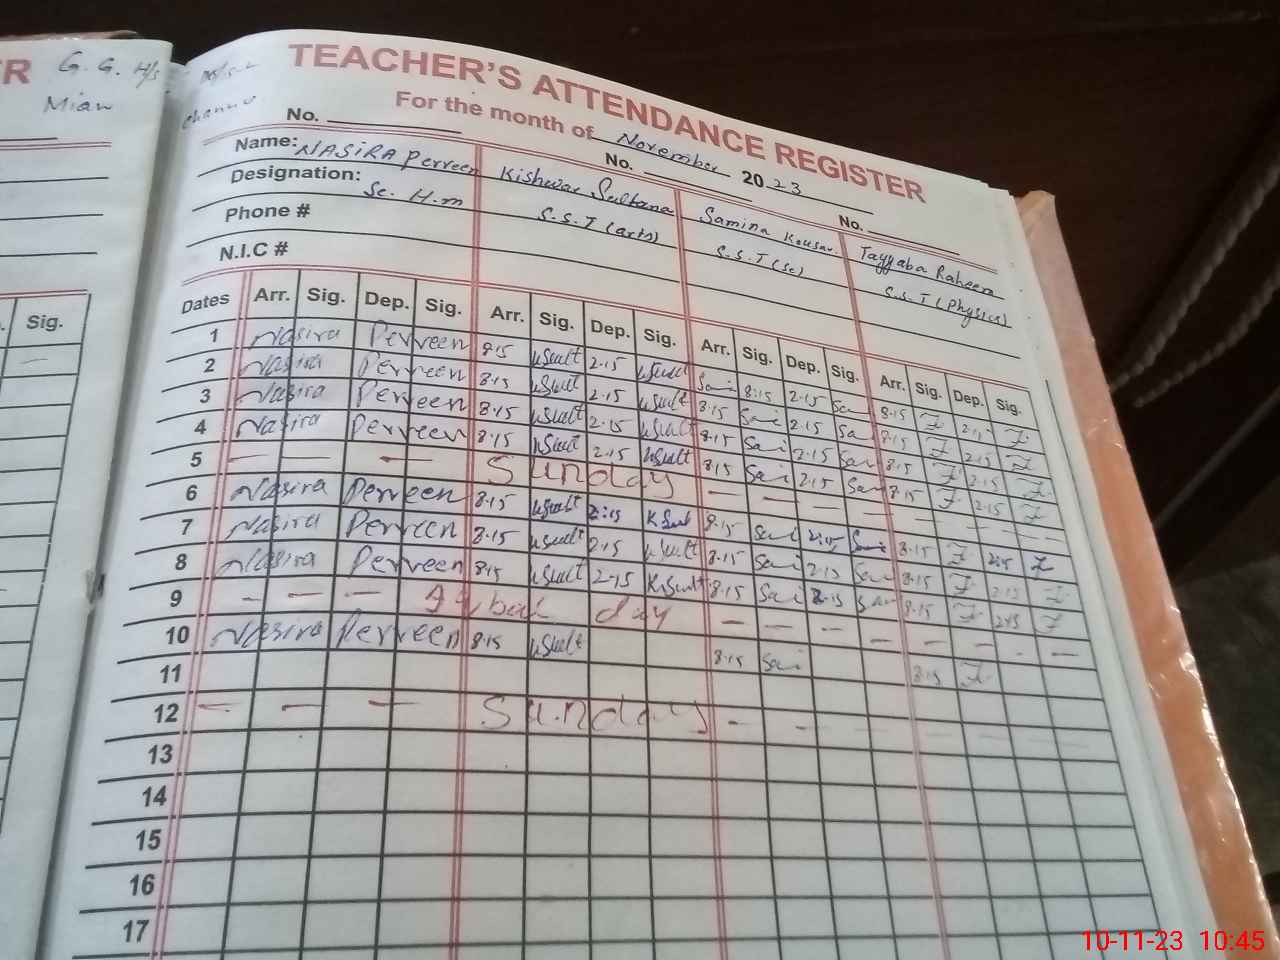 ER G. G. H/S
Mian Channu
TEACHER'S ATTENDANCE REGISTER
For the month of November 2023
No. No. No.
Name: NASIRA Perveen Kishwar Sultana Samina Kousar. Tayyaba Raheem
Designation: Se. H.m S.S.T (arts) S.S.T (Sc) S.S.T (Physics)
Phone #
N.I.C #
Sig. Dates Arr. Sig. Dep. Sig. Arr. Sig. Dep. Sig. Arr. Sig. Dep. Sig. Arr. Sig. Dep. Sig.
1 Nasira Perveen 8·15 2·15 Sai 8:15 2·15 Sai 8·15 2·15
2 Nasira Perveen 8·15 2·15 8·15 Sai 2·15 Sai 8·15 2·15
3 Nasira Perveen 8·15 2·15 8·15 Sai 2·15 Sai 8·15 2·15
4 Nasira Perveen 8·15 2·15 8·15 Sai 2·15 Sai 8·15 2·15
5 — — — — Sunday — — — — — — — —
6 Nasira Perveen 8·15 2:15 KSult 8·15 Sai 2:15 Sai 8·15 2:15
7 Nasira Perveen 8·15 2·15 8·15 Sai 2·15 Sai 8·15 2·15
8 Nasira Perveen 8·15 2·15 KSult 8·15 Sai 2·15 Sai 8·15 2:15
9 — — — Iqbal day — — — — — — — —
10 Nasira Perveen 8·15 8·15 Sai 8·15
11
12 — — — Sunday — — — — — — — —
13
14
15
16
17
10-11-23 10:45